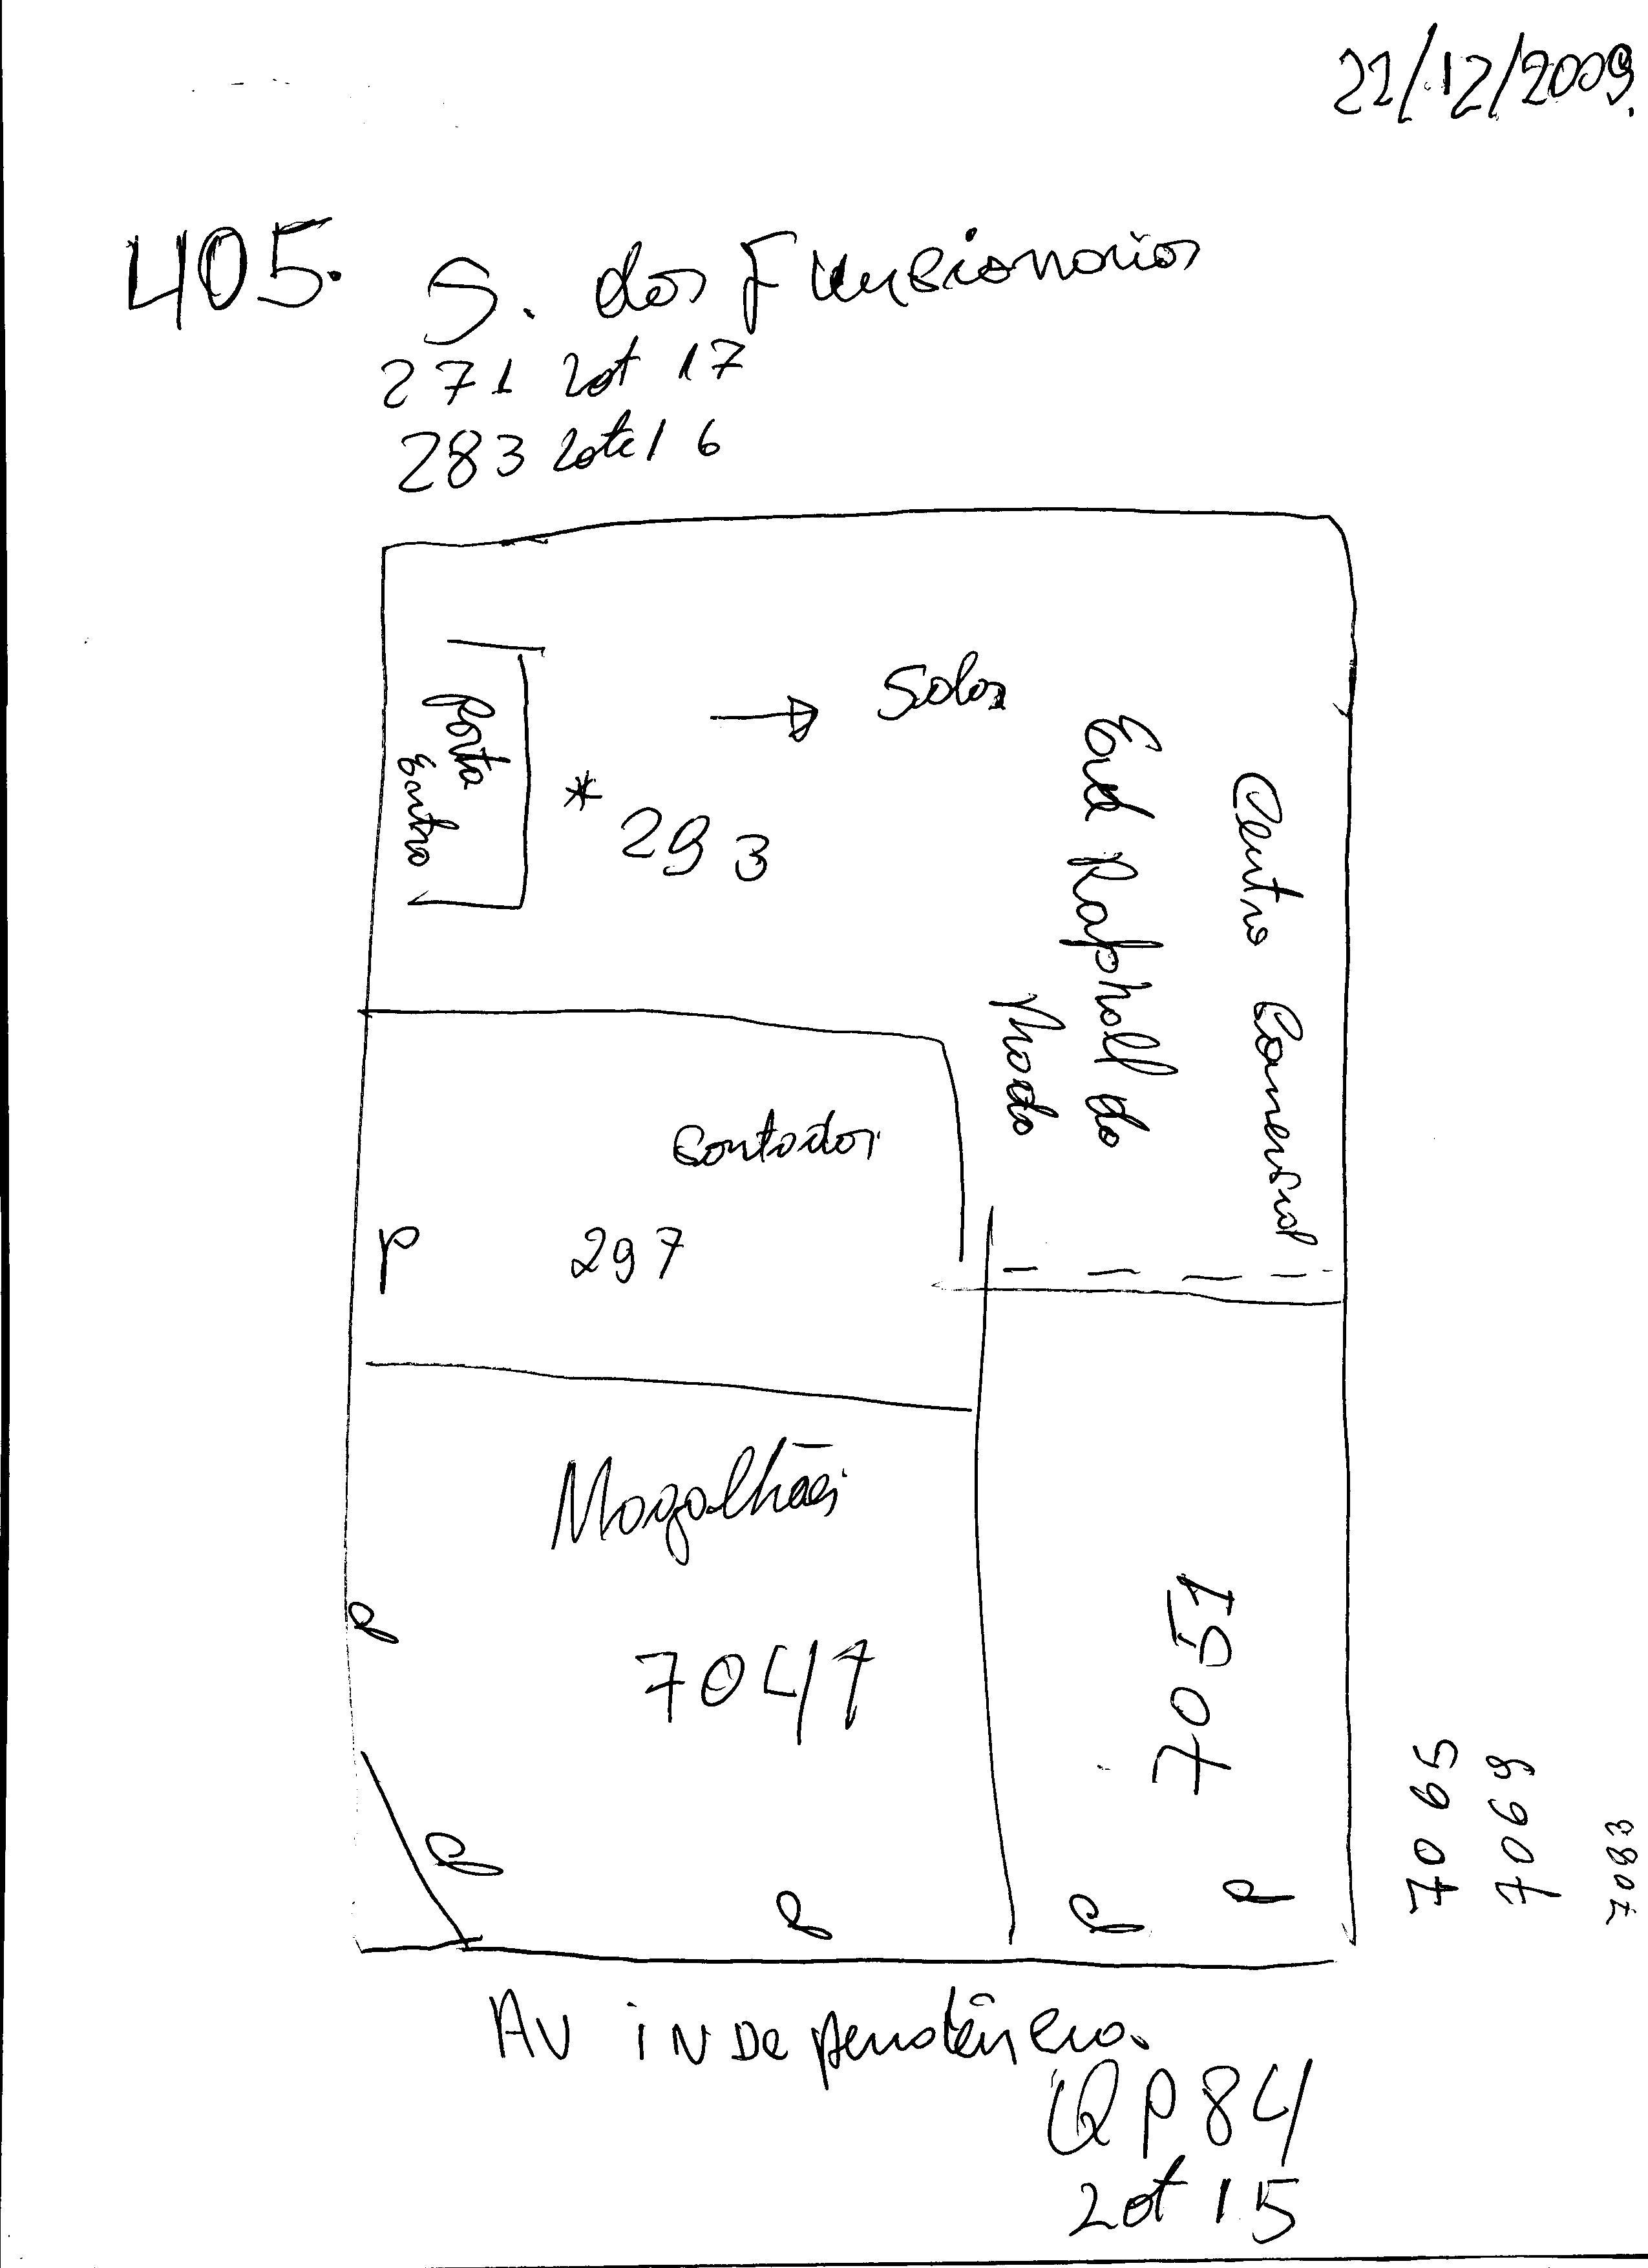 22/12/2009.
405. S. dos Funsionarios
271 Lot 17
283 Lote 16
Porta
Entra
Salas
* 293
Centro Comersial
Ed Raphall da
Moda
Contador
P 297
Magalhães
P
7047
7051
P
P
P
P
7065
7069
7083
AV iNDependência.
QP84
Lot 15